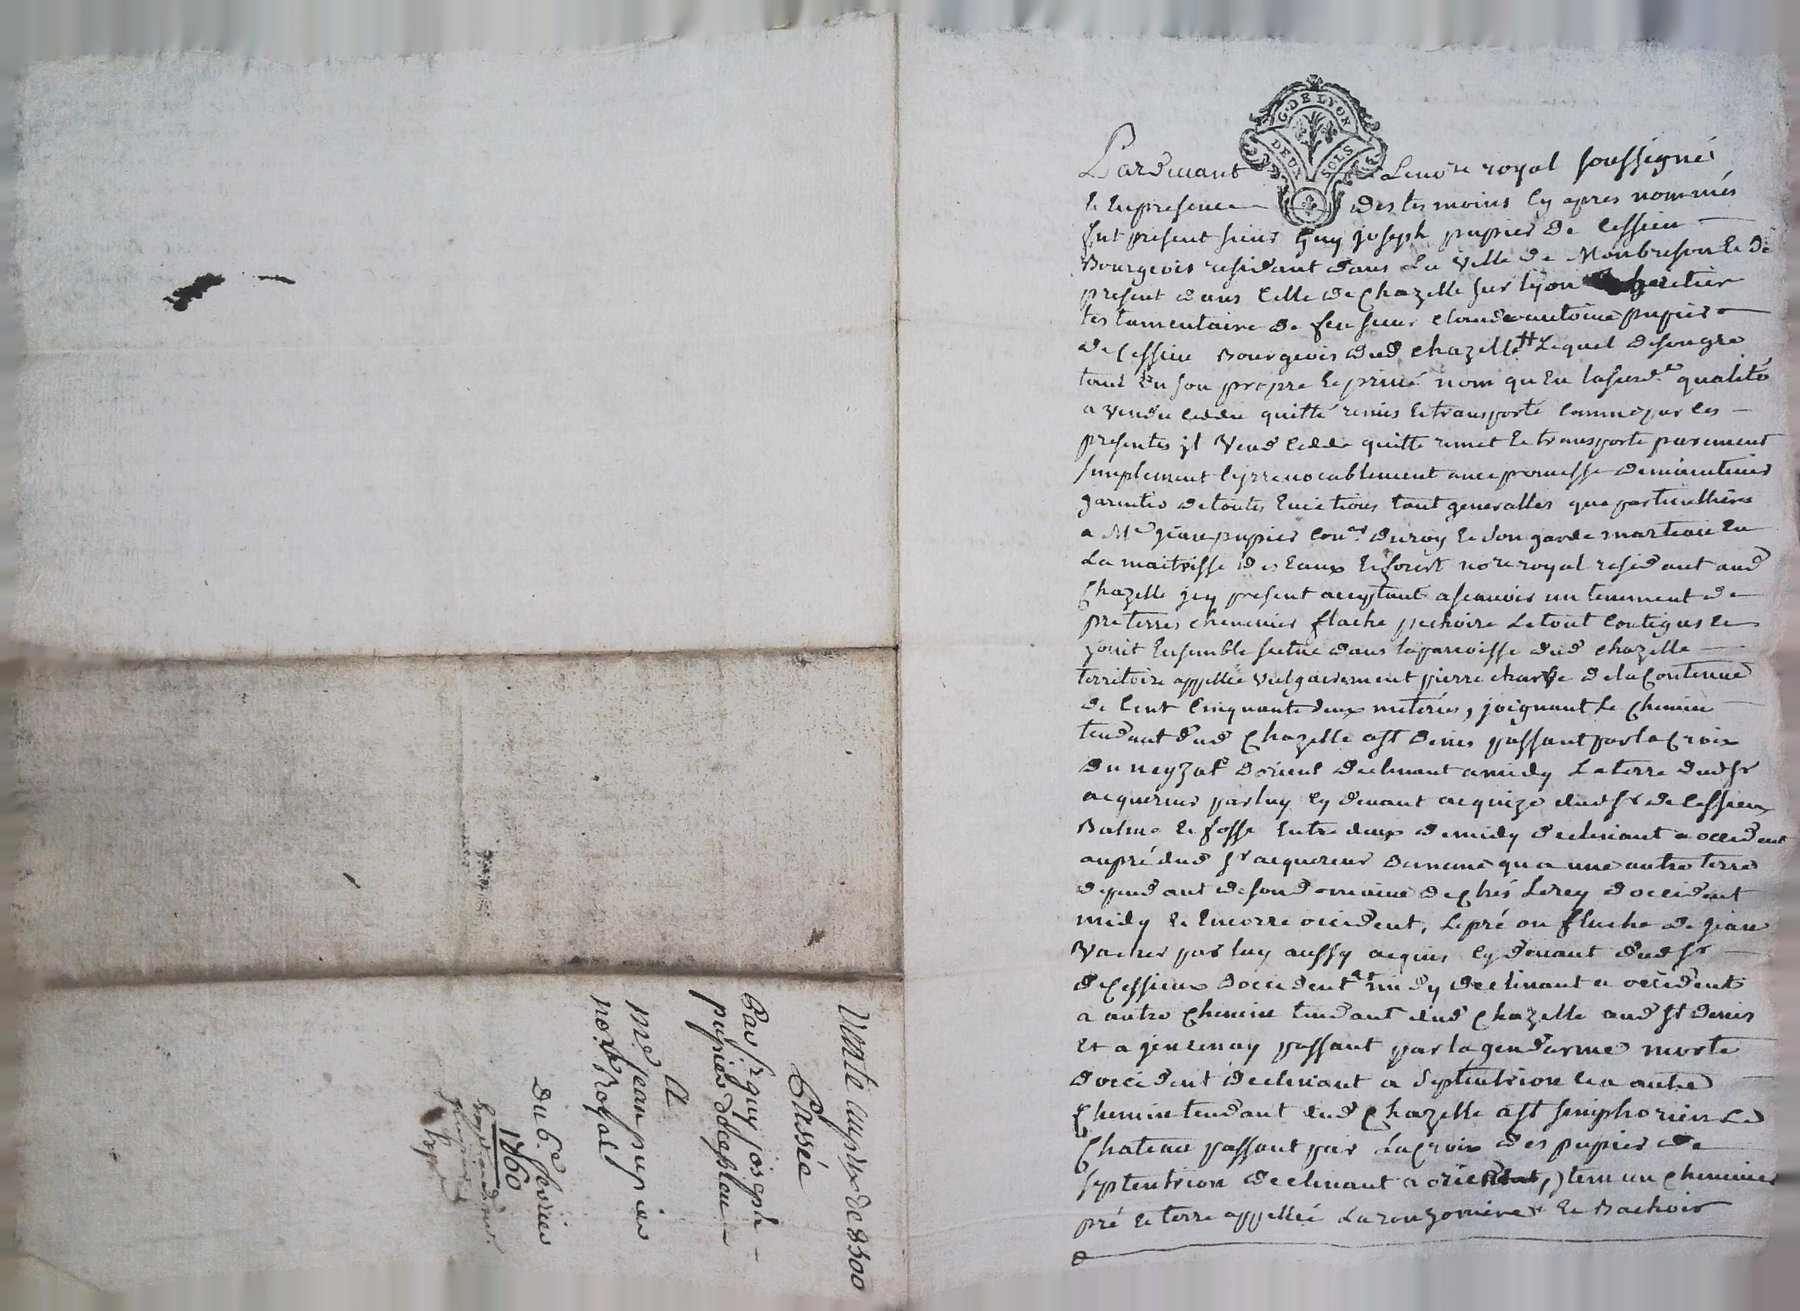 G. DE LYON
DEUX SOLS
Pardevant Le no.re royal soussigné
Et En presence des tesmoins Cy apres nommés
fut present sieur Guy joseph pupier de Cessieu
Bourgeois residant dans La Ville de Monbrison Et de
present dans Celle de Chazelle sur lyon heritier
testamentaire de feu sieur Claude antoine pupier
de Cessieu Bourgeois dud Chazelle Lequel de son gre
tant En son propre Et privé nom qu En la susd.e qualité
a vendu Cedde quitté remis Et transporté Comme par Ces
presentes jl Vend Cedde quitte remet Et transporte purement
simplement Et jrrevocablement avec promesse de maintenir
garentir de toutes Evictions tant generalles que particulliere
a Me jean pupier Con.er du roy Et son garde marteau En
La maitrisse des Eaux Et forest no.re royal residant aud
Chazelle jcy present acceptant a scavoir un tenement de
pre terres cheneviers flache pechoire Le tout Contigus Et
joint Ensemble situé dans la parroisse dud Chazelle
territoire appellée vulgairement pierre charve de la Contenue
de Cent Cinquante deux meterées, joignant Le Chemin
tendant dud Chazelle a St Denis passant par la Croix
du neyzat d'orient declinant a midy La terre dud Sr
acquereur par luy Cy devant acquize dud Sr de Cessieu
Balme Et fosse Entre deux de midy declinant a occident
au pré dud Sr acquereur de meme qu a une autre terre
dependant de son domaine de Chés Lerey d occident
midy Et Encorre occident, Le pré ou flache de jean
Vacher par luy aussy acquis Cy devant dud Sr
de Cessieux d occident et midy declinant a occident
a autre Chemin tendant dud Chazelle aud St Denis
Et a passant par la gendarme morte
d occident declinant a septentrion Et a autre
Chemin tendant dud Chazelle a St simphorien Le
Chateau passant par La Croix des pupier de
septentrion declinant a orient, jtem un Chenevier
pré Et terre appellée Et Bachoir
Vente au prix de 8500
Passée
Par Sr guy joseph
pupier de Cessieu
A
Me jean pupier
no.re Royal
Du 6.e fevrier
1760